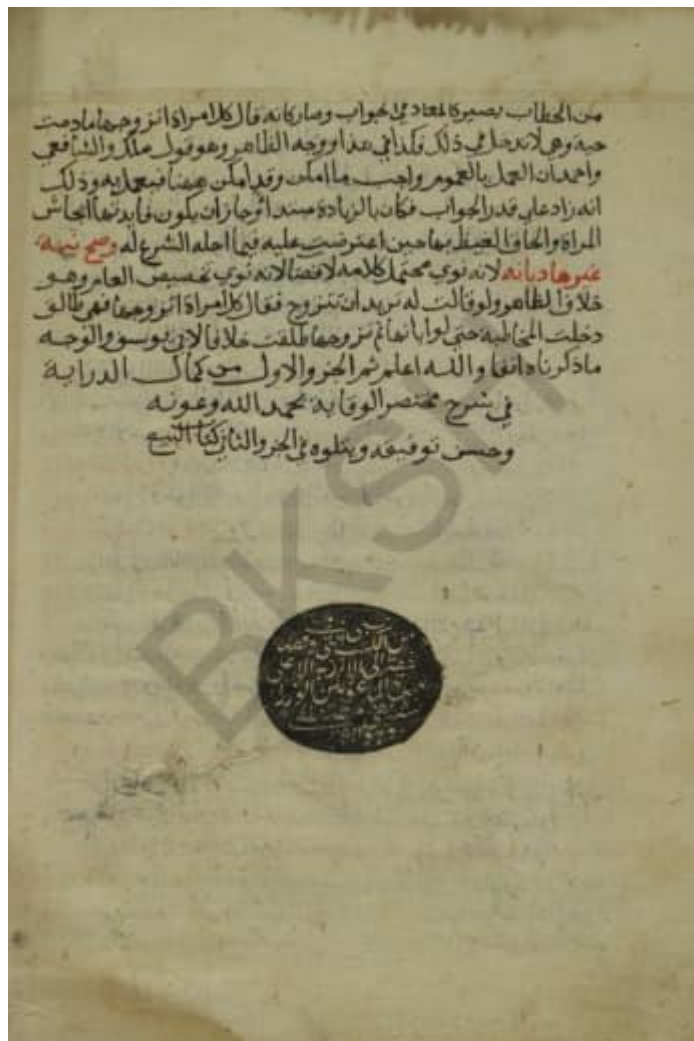 من الخطاب يصير كالمعاد في الجواب وصار كانه قال كل امراة اتزوجها مادمت
حية وهي لا تدخل في ذلك فكذا في هذا ووجه الظاهر وهو قول ملك والشافعي
واحمد ان العمل بالعموم واجب ما امكن وقد امكن هنا فيعمل به وذلك
انه زاد علي قدر الجواب فكان بالزيادة مبتدا وجاز ان يكون فايدتها ايحاش
المراة والحاق الغيظ بها حين اعترضت عليه فيما احله الشرع له وصح نية
غيرها ديانة لانه نوي محتمل كلامه لا قضا لانه نوي تخصيص العام وهو
خلاف الظاهر ولو قالت له تريد ان تتزوج فقال كل امراة اتزوجها فهي طالق
دخلت المخاطبة حتي لو ابانها ثم تزوجها طلقت خلافا لابي يوسف والوجه
ما ذكرناه انفا والله اعلم تم الجزو الاول من كمال الدراية
في شرح مختصر الوقاية بحمد الله وعونه
وحسن توفيقه ويتلوه في الجزو الثاني كتاب البيع
BKSH